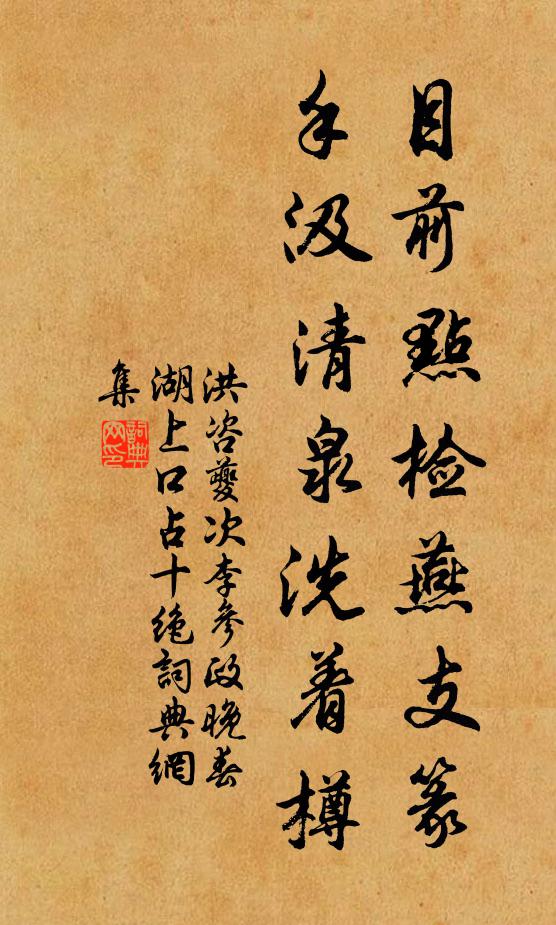 目前點檢燕支篆
手汲清泉洗着樽
洪咨夔次李參政晚春
湖上口占十絶詞典網
集
詞典網印